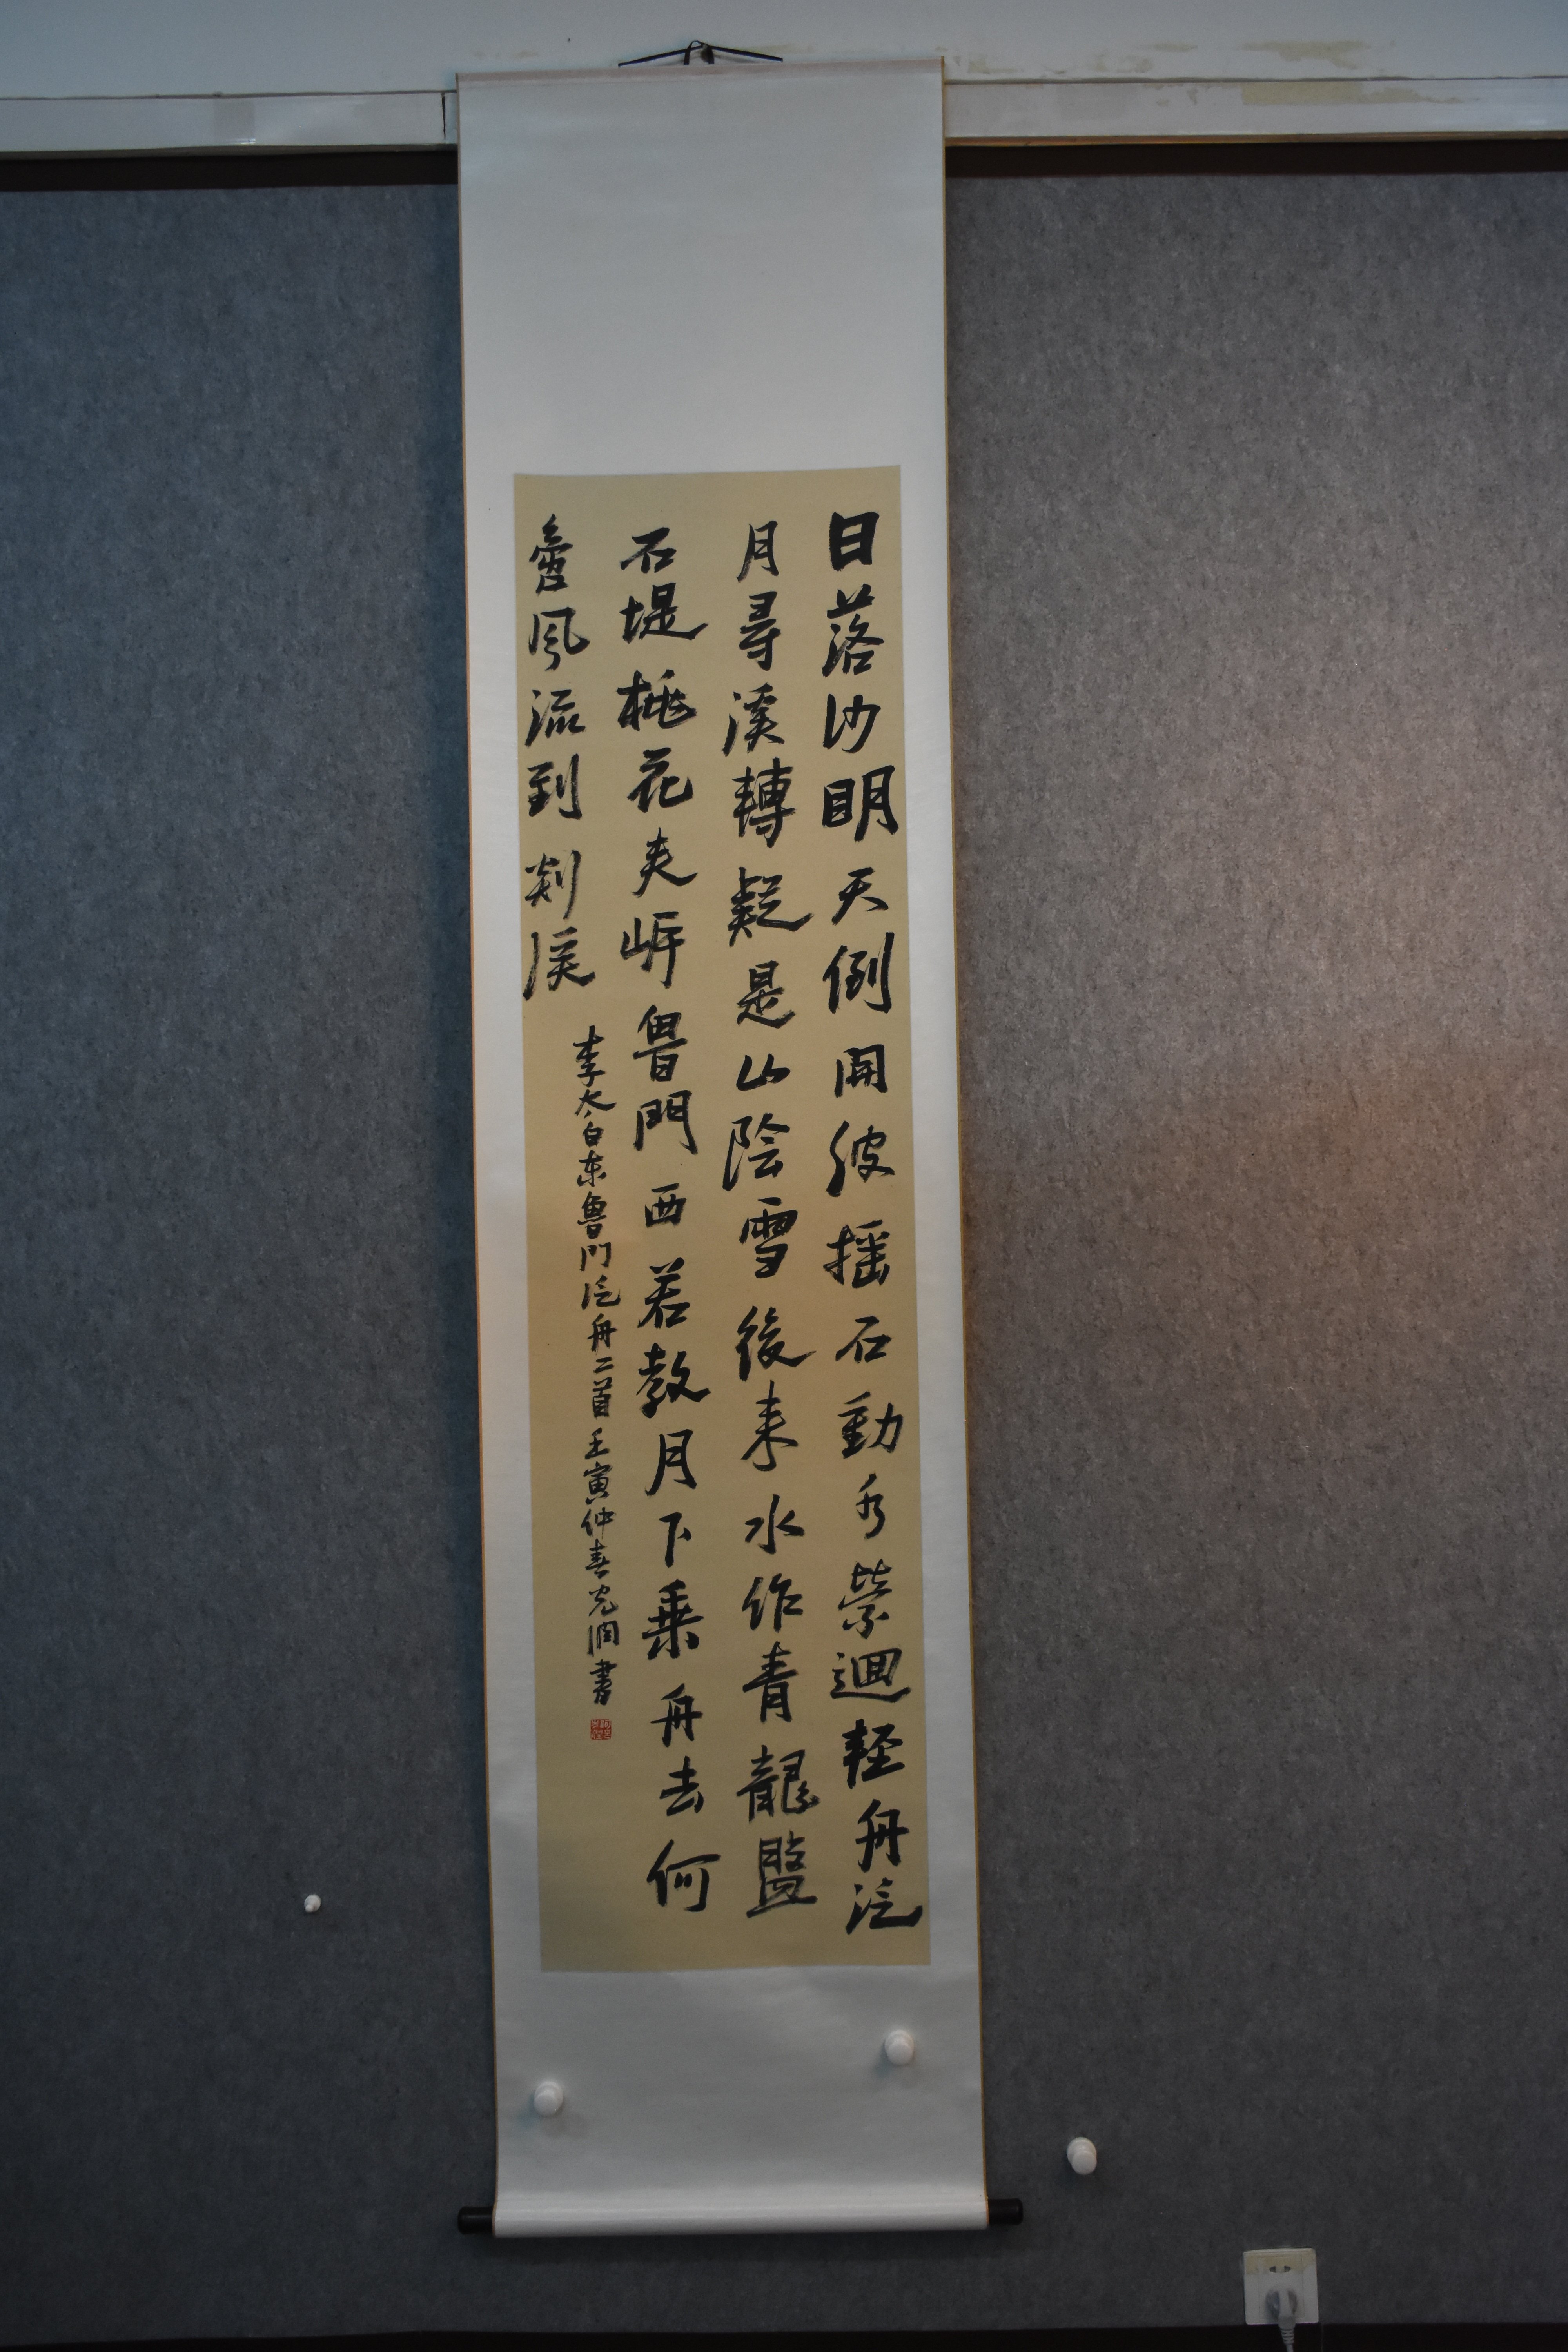 日落沙明天倒開波摇石動水縈迴輕舟泛
月尋溪轉疑是山陰雪後来水作青龍盤
石堤桃花夾岸魯門西若教月下乗舟去何
啻風流到剡溪
李太白东魯门泛舟二首壬寅仲春光润書